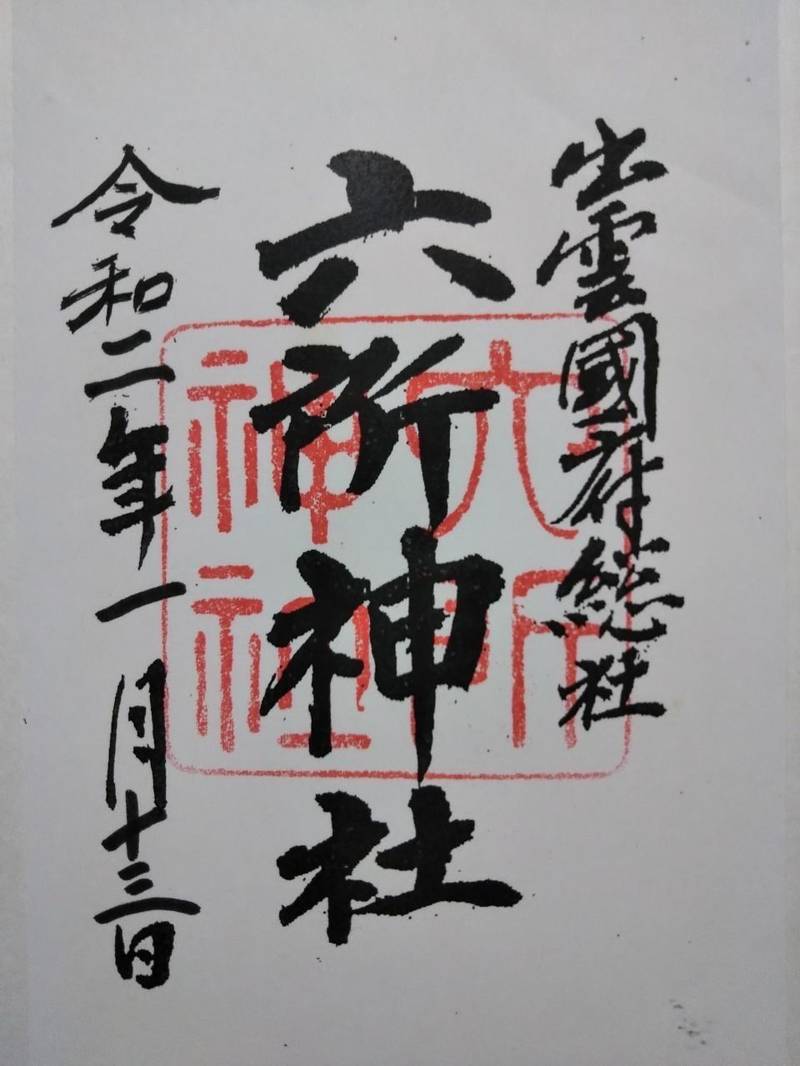 出雲國府総社
六所神社
六所
神社
令和二年一月十三日